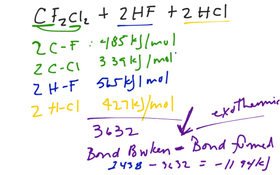 CF2Cl2 + 2HF + 2HCl
2 C-F : 485 kJ/mol
2 C-Cl 339 kJ/mol
2 H-F 565 kJ/mol
2 H-Cl 427 kJ/mol
exothermic
3632
Bond Broken - Bond formed
2438 - 3632 = -1194 kJ